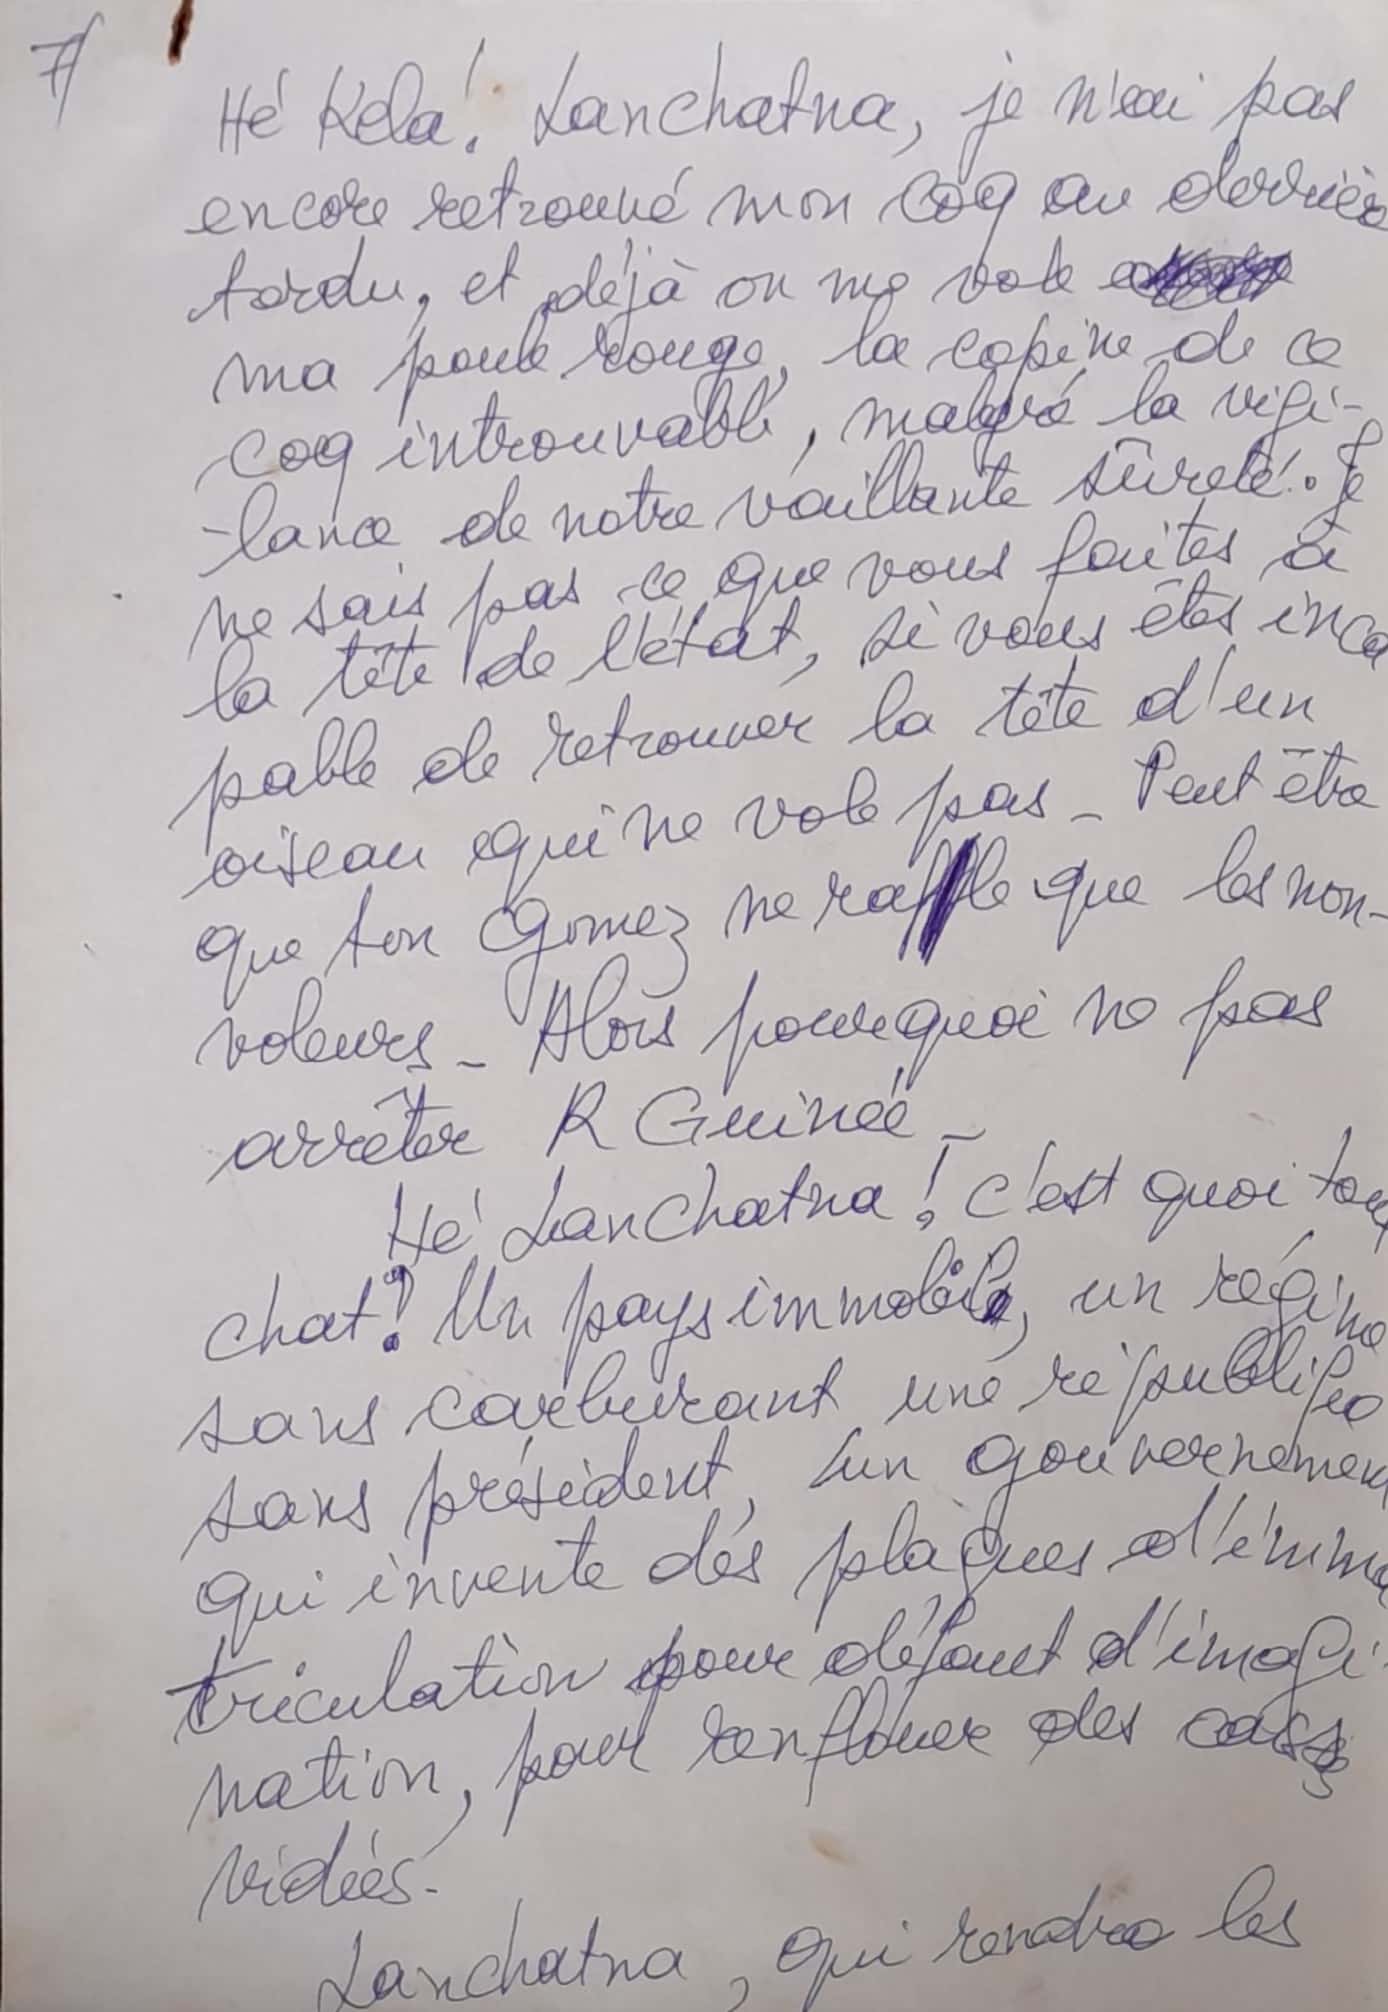 7/
Hé Kela! Lanchatna, je n'ai pas
encore retrouvé mon coq au derrièr
tordu, et déjà on me vole
ma poule rouge, la copine de ce
coq introuvable, malgré la vigi-
-lance de notre vaillante sûreté. Je
ne sais pas ce que vous faites à
la tête de l'état, si vous êtes inca
pable de retrouver la tête d'un
oiseau qui ne vole pas - Peut être
que ton Gomez ne rafle que les non-
voleurs - Alors pourquoi ne pas
arrêter R Guinée -
Hé Lanchatna! C'est quoi tou
chat? Un pays immobile, un régime
sans carburant une républiqe
sans président, un gouvernemen
qui invente des plaques d'imma
triculation pour défaut d'imagi-
nation, pour renflouer des
vidées.
Lanchatna, qui rendra les